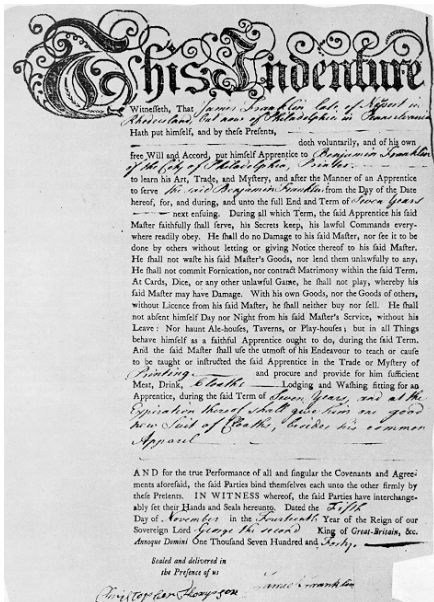 This Indenture
Witnesseth, That James Franklin late of Newport in
Rhodeisland, but now of Philadelphia in Pensilvania
Hath put himself, and by these Presents,
doth voluntarily, and of his own
free Will and Accord, put himself Apprentice to Benjamin Franklin
of the City of Philadelphia, Printer
to learn his Art, Trade, and Myſtery, and after the Manner of an Apprentice
to ſerve the said Benjamin Franklin from the Day of the Date
hereof, for, and during, and unto the full End and Term of Seven Years
next enſuing. During all which Term, the ſaid Apprentice his ſaid
Maſter faithfully ſhall ſerve, his Secrets keep, his lawful Commands every-
where readily obey. He ſhall do no Damage to his ſaid Maſter, nor ſee it to be
done by others without letting or giving Notice thereof to his ſaid Maſter.
He ſhall not waſte his ſaid Maſter's Goods, nor lend them unlawfully to any.
He ſhall not commit Fornication, nor contract Matrimony within the ſaid Term.
At Cards, Dice, or any other unlawful Game, he ſhall not play, whereby his
ſaid Maſter may have Damage. With his own Goods, nor the Goods of others,
without Licence from his ſaid Maſter, he ſhall neither buy nor ſell. He ſhall
not abſent himſelf Day nor Night from his ſaid Maſter's Service, without his
Leave: Nor haunt Ale-houſes, Taverns, or Play-houſes; but in all Things
behave himſelf as a faithful Apprentice ought to do, during the ſaid Term.
And the ſaid Maſter ſhall uſe the utmoſt of his Endeavour to teach or cauſe
to be taught or inſtructed the ſaid Apprentice in the Trade or Myſtery of
Printing and procure and provide for him ſufficient
Meat, Drink, Cloaths Lodging and Waſhing fitting for an
Apprentice, during the ſaid Term of Seven Years, and at the
Expiration thereof shall give him one good
new Suit of Cloaths, besides his common
Apparel
AND for the true Performance of all and ſingular the Covenants and Agree-
ments aforeſaid, the ſaid Parties bind themſelves each unto the other firmly by
theſe Preſents. IN WITNESS whereof, the ſaid Parties have interchange-
ably ſet their Hands and Seals hereunto. Dated the Fifth
Day of November in the Fourteenth Year of the Reign of our
Sovereign Lord George the second King of Great-Britain, &c.
Annoque Domini One Thouſand Seven Hundred and Forty
Sealed and delivered in
the Presence of us
Christopher Thompson James Franklin